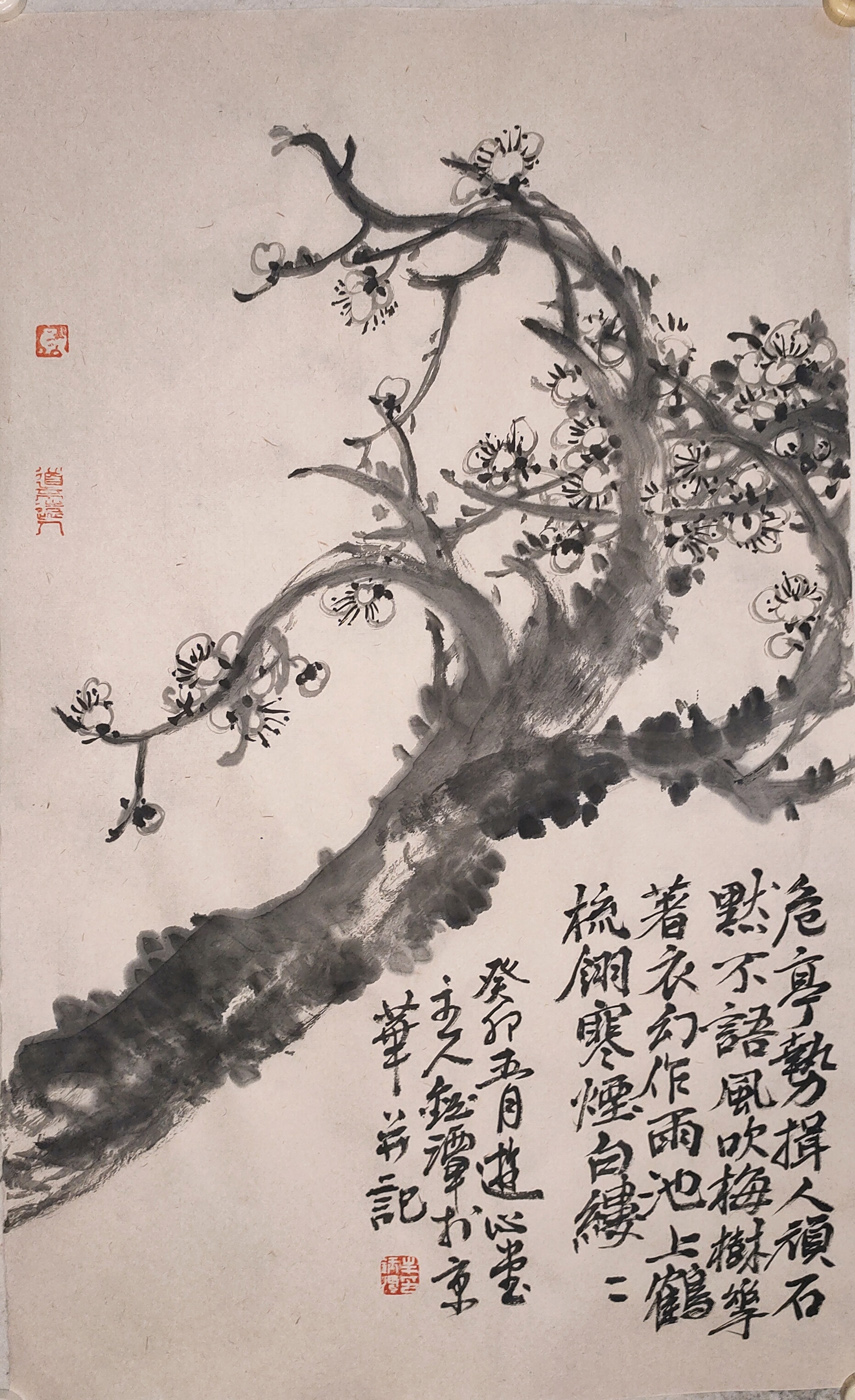 危亭勢揖人頑石
黙不語風吹梅樹華
著衣幻作雨池上鶴
梳翎寒煙白縷二
癸卯五月遊心堂
主人潭扵京
華并記